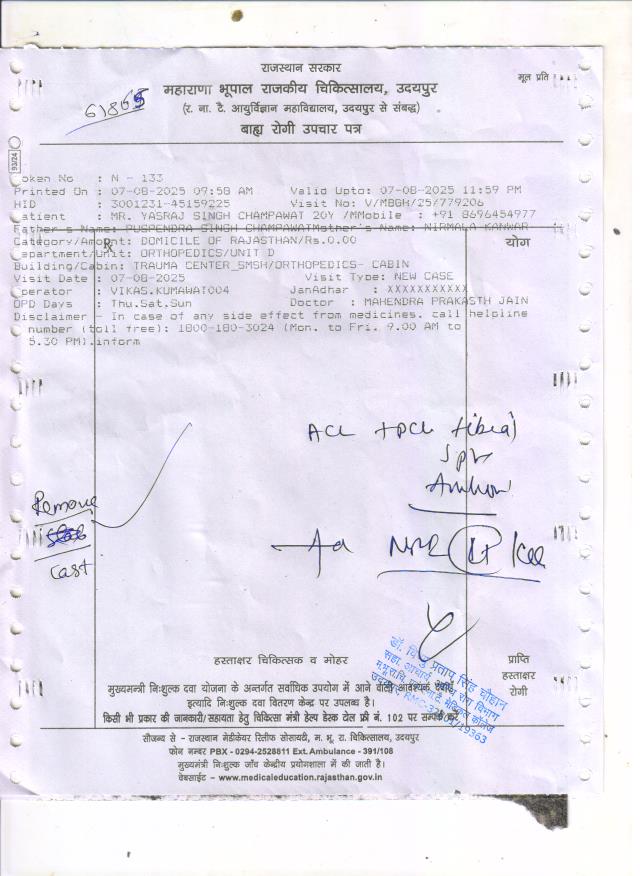 राजस्थान सरकार
मूल प्रति
महाराणा भूपाल राजकीय चिकित्सालय, उदयपुर
61865
(र. ना. टै. आयुर्विज्ञान महाविद्यालय, उदयपुर से संबद्ध)
बाह्य रोगी उपचार पत्र
93/24
oken No : N - 133
Printed On : 07-08-2025 09:58 AM Valid Upto: 07-08-2025 11:59 PM
HID : 3001231-45159225 Visit No: V/MBGH/25/779206
atient : MR. YASRAJ SINGH CHAMPAWAT 20Y /MMobile : +91 8696454977
Father's Name: PUSPENDRA SINGH CHAMPAWATMother's Name: NIRMALA KANWAR
Category/Amount: DOMICILE OF RAJASTHAN/Rs.0.00
Rx
योग
epartment/Unit: ORTHOPEDICS/UNIT D
Building/Cabin: TRAUMA CENTER_SMSH/ORTHOPEDICS- CABIN
Visit Date : 07-08-2025 Visit Type: NEW CASE
perator : VIKAS.KUMAWAT004 JanAdhar : XXXXXXXXXXX
OPD Days : Thu.Sat.Sun Doctor : MAHENDRA PRAKASTH JAIN
Disclaimer - In case of any side effect from medicines. call helpline
number (toll free): 1800-180-3024 (Mon. to Fri. 9.00 AM to
5.30 PM).inform
ACL + PCL tibial
Remove
cast
हस्ताक्षर चिकित्सक व मोहर
प्राप्ति
हस्ताक्षर
रोगी
मुख्यमन्त्री निःशुल्क दवा योजना के अन्तर्गत सर्वाधिक उपयोग में आने वाली आवश्यक
इत्यादि निःशुल्क दवा वितरण केन्द्र पर उपलब्ध है।
किसी भी प्रकार की जानकारी/सहायता हेतु चिकित्सा मंत्री हेल्प डेस्क टोल फ्री नं. 102 पर सम्पर्क करें
सौजन्य से - राजस्थान मेडीकेयर रिलीफ सोसायटी, म. भू. रा. चिकित्सालय, उदयपुर
फोन नम्बर PBX - 0294-2528811 Ext. Ambulance - 391/108
मुख्यमंत्री निःशुल्क जाँच केन्द्रीय प्रयोगशाला में की जाती है।
वेबसाईट - www.medicaleducation.rajasthan.gov.in